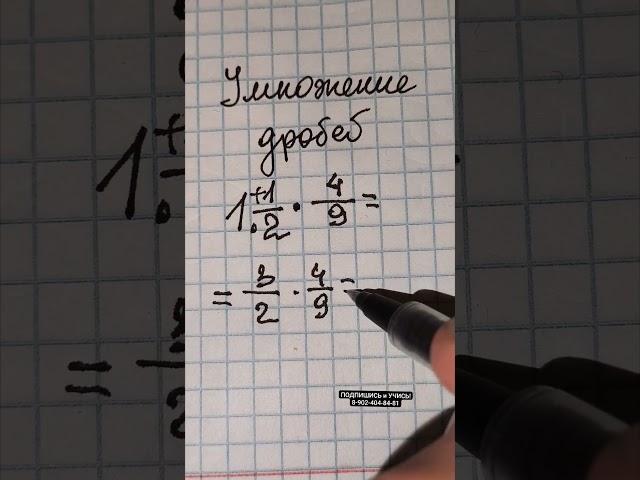 Умножение
дробеб
1 +1/2 · 4/9 =
= 3/2 · 4/9 =
ПОДПИШИСЬ и УЧИСЬ!
8-902-404-84-81